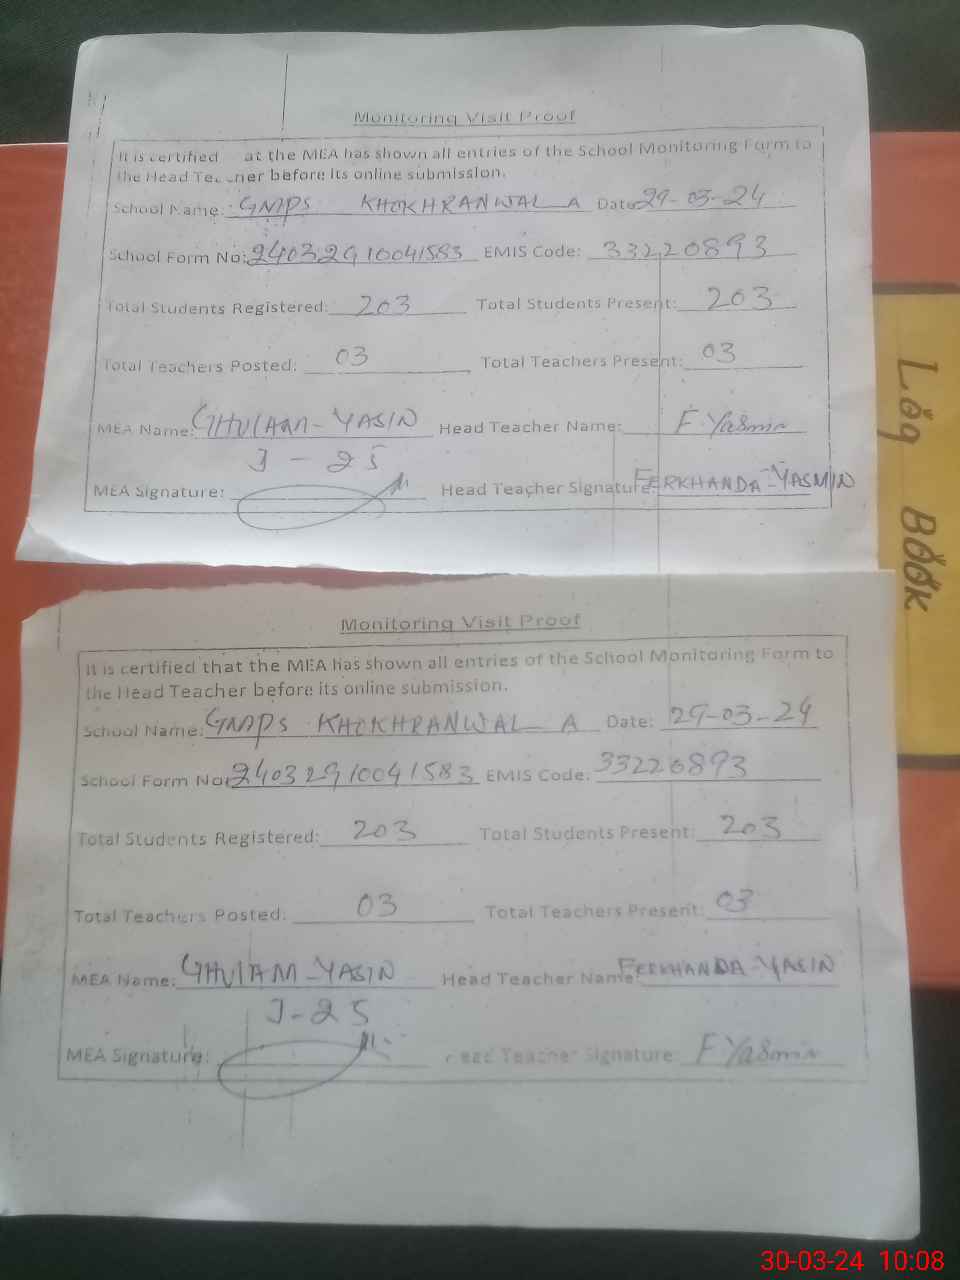 Monitoring Visit Proof
It is certified at the MEA has shown all entries of the School Monitoring Form to
the Head Te ner before its online submission.
School Name: GMPS KHOKHRANWAL A Date 29-03-24
School Form No: 24032910041583 EMIS Code: 33220893
Total Students Registered: 203 Total Students Present: 203
Total Teachers Posted: 03 Total Teachers Present: 03
MEA Name: GHULAM-YASIN Head Teacher Name: F. Yasmin
J-25
MEA Signature: Head Teacher Signature: FERKHANDA-YASMIN
Monitoring Visit Proof
It is certified that the MEA has shown all entries of the School Monitoring Form to
the Head Teacher before its online submission.
School Name: GMPS KHOKHRANWAL A Date: 29-03-24
School Form No: 24032910041583 EMIS Code: 33220893
Total Students Registered: 203 Total Students Present: 203
Total Teachers Posted: 03 Total Teachers Present: 03
MEA Name: GHULAM-YASIN Head Teacher Name: FERKHANDA-YASIN
J-25
MEA Signature: ead Teacher Signature: F. Yasmin
Log BOOK
30-03-24 10:08